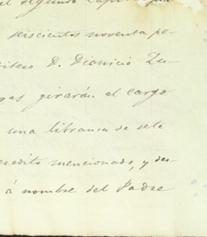 el segundo
seiscientos noventa pe-
D. Dionicio Zu-
gas girarán el cargo
una libranza de sete
credito mencionado, y des-
á nombre del Padre